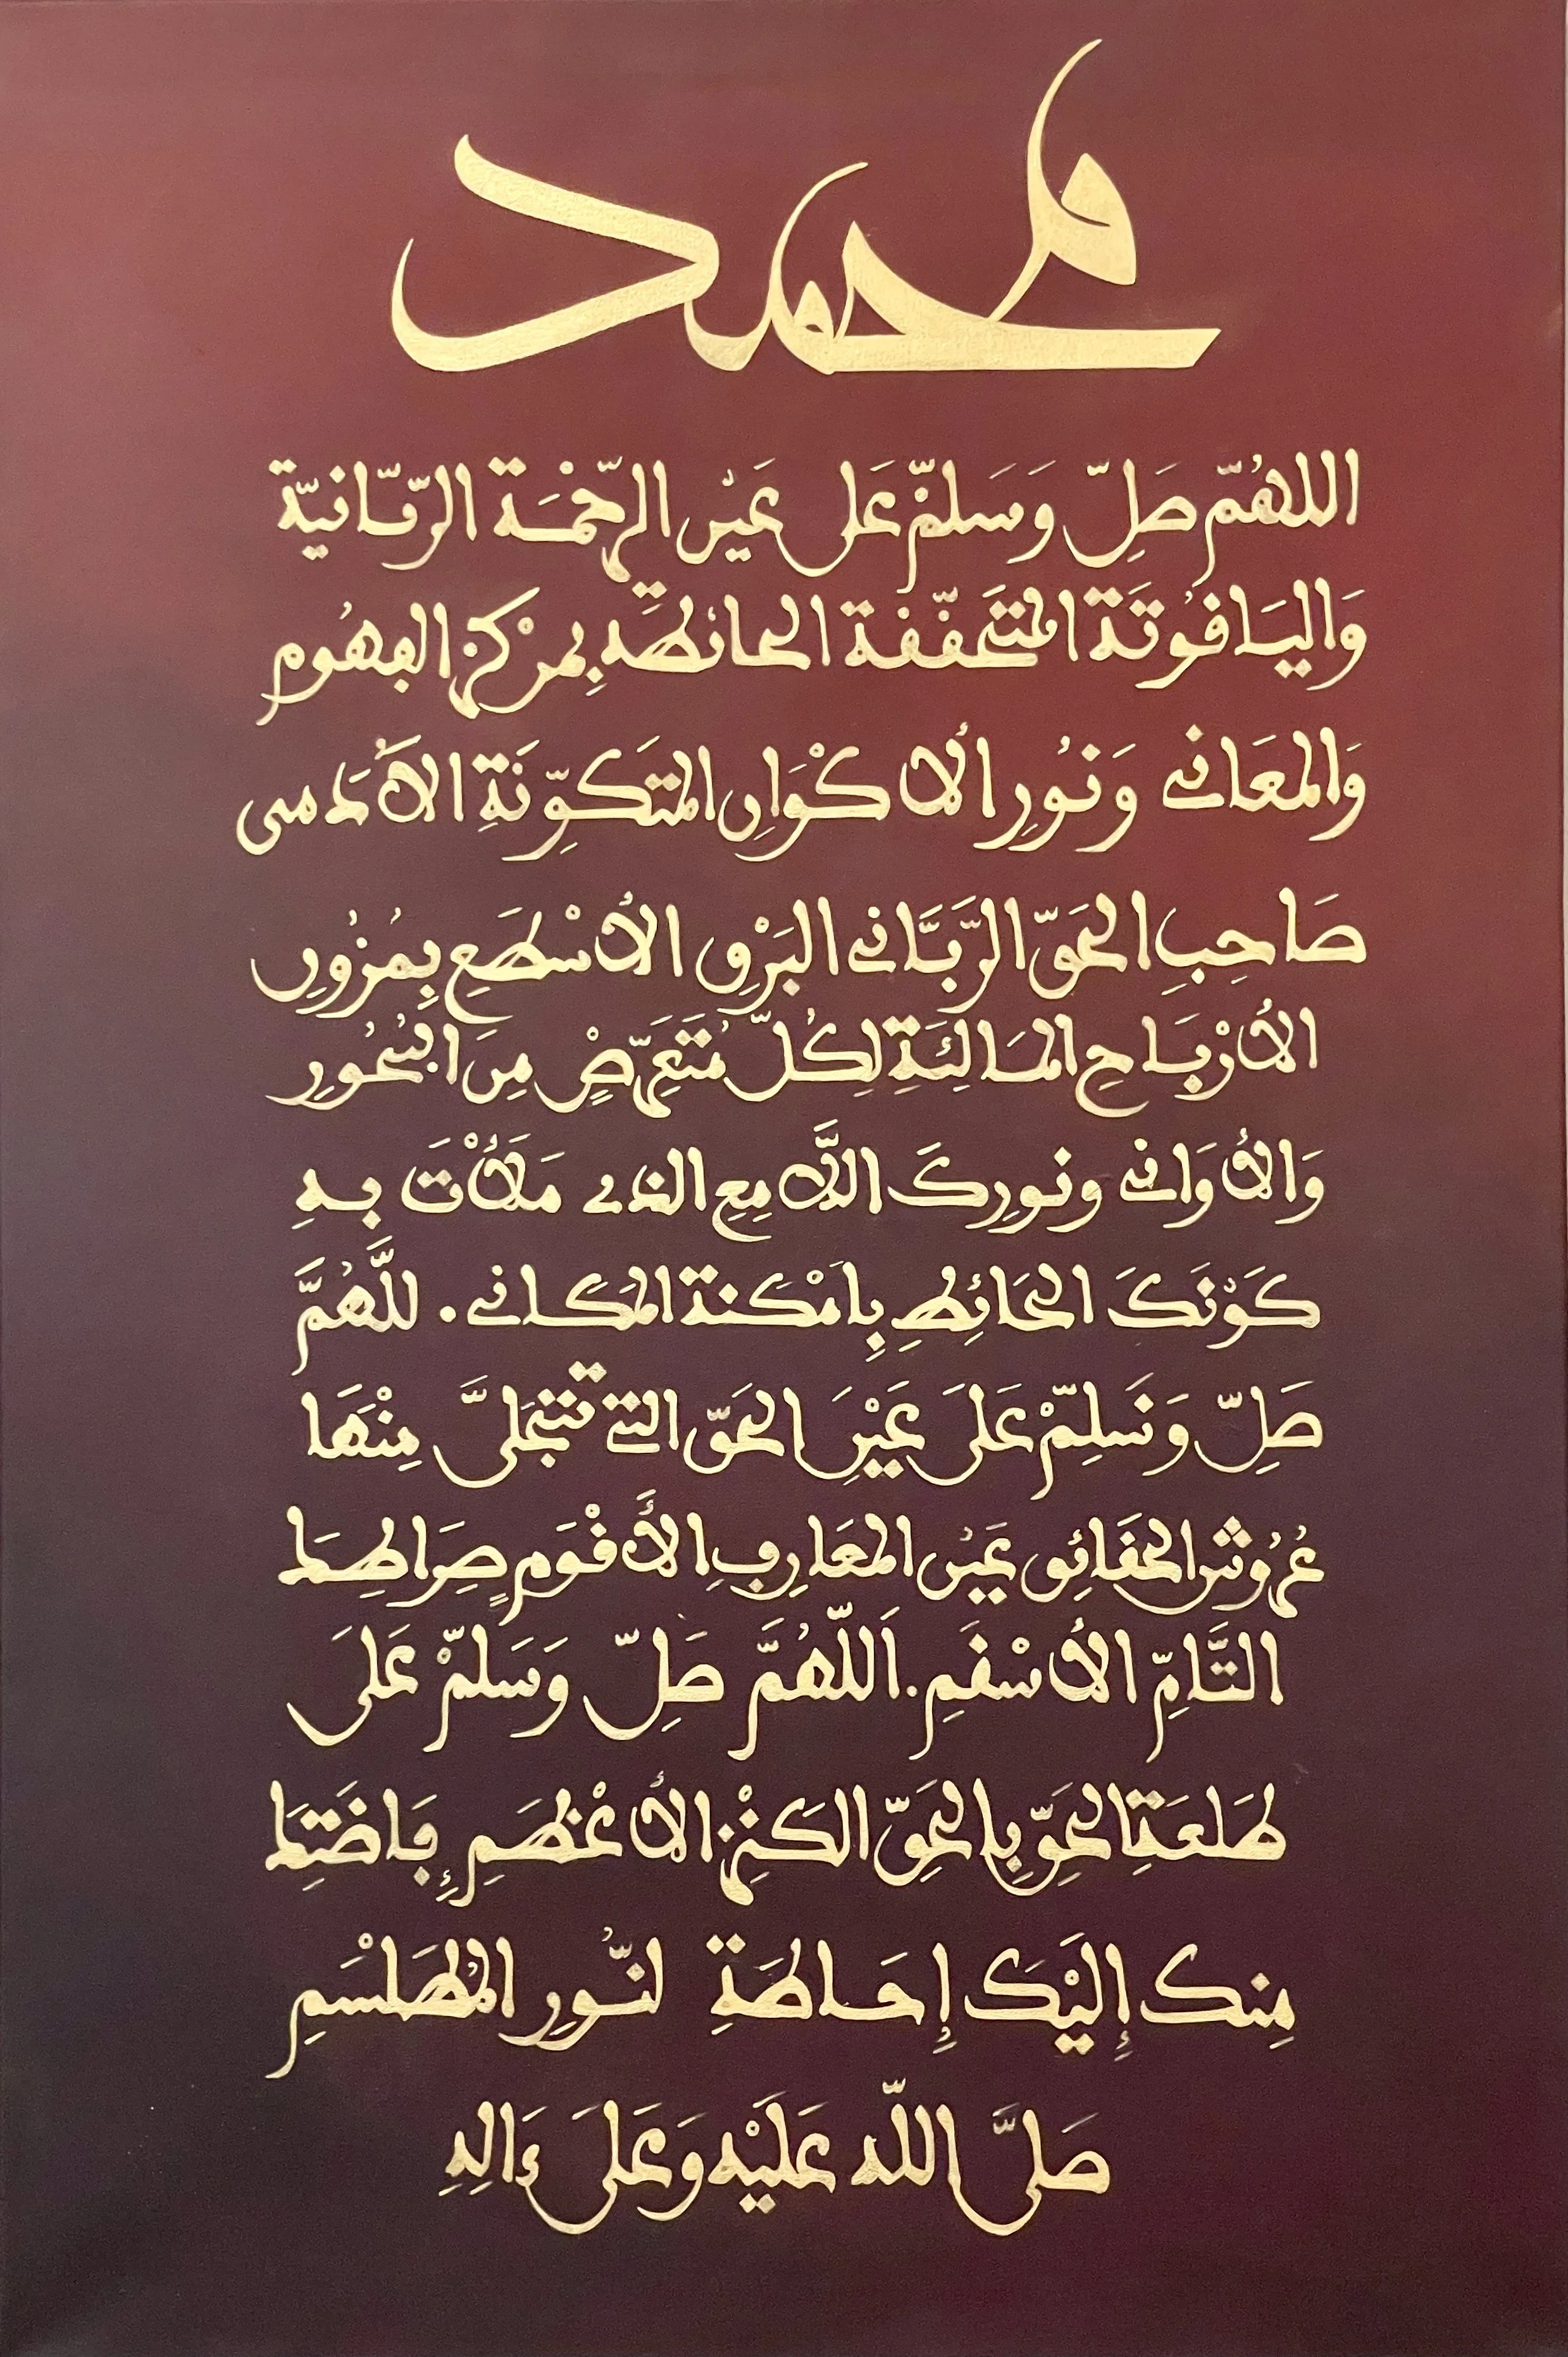 محمد
اللهمّ صَلِّ وَسَلِّمْ عَلى عَيْن الرّحْمَة الرّبّانيّة
وَاليَاقُوتَة المتَحَقّقة الحائطة بِمرْكز الفهُوم
وَالمعَاني وَنُورِ الأكْوَانِ المتَكوِّنَةِ الآدَمى
صَاحِبِ الحَقّ الرَّبَّاني البَرْقِ الأسْطَعِ بِمُزُونِ
الأرْبَاحِ المَالِئَةِ لِكُلّ مُتَعَرّضٍ مِنَ البُحُورِ
وَالأوَاني ونورِكَ اللَّامِعِ الذي مَلأْتَ بهِ
كَوْنَكَ الحَائِطِ بِامْكنة المكاني. للَّهُمَّ
صَلِّ وَسَلِّمْ عَلَى عَيْنِ الحَقّ التي تتجَلىَّ مِنْهَا
عُرُوشُ الحقَائِق عَيْن المعَارِفِ الأَقْوَم صِرَاطِهَا
التَّامّ الأسْقَمِ. اَللّهُمَّ صَلِّ وَسَلّمْ عَلَى
طَلعَةِ الحَقِّ بِالحَقّ الكَنْزِ الأعْظَمِ إِفَاضَتِهَا
مِنك إِليْكَ إِحَاطَةِ لنّورِ المُطَلْسَمِ
صَلىَّ اللّه عَلَيْه وَعَلَى ءَالِهِ